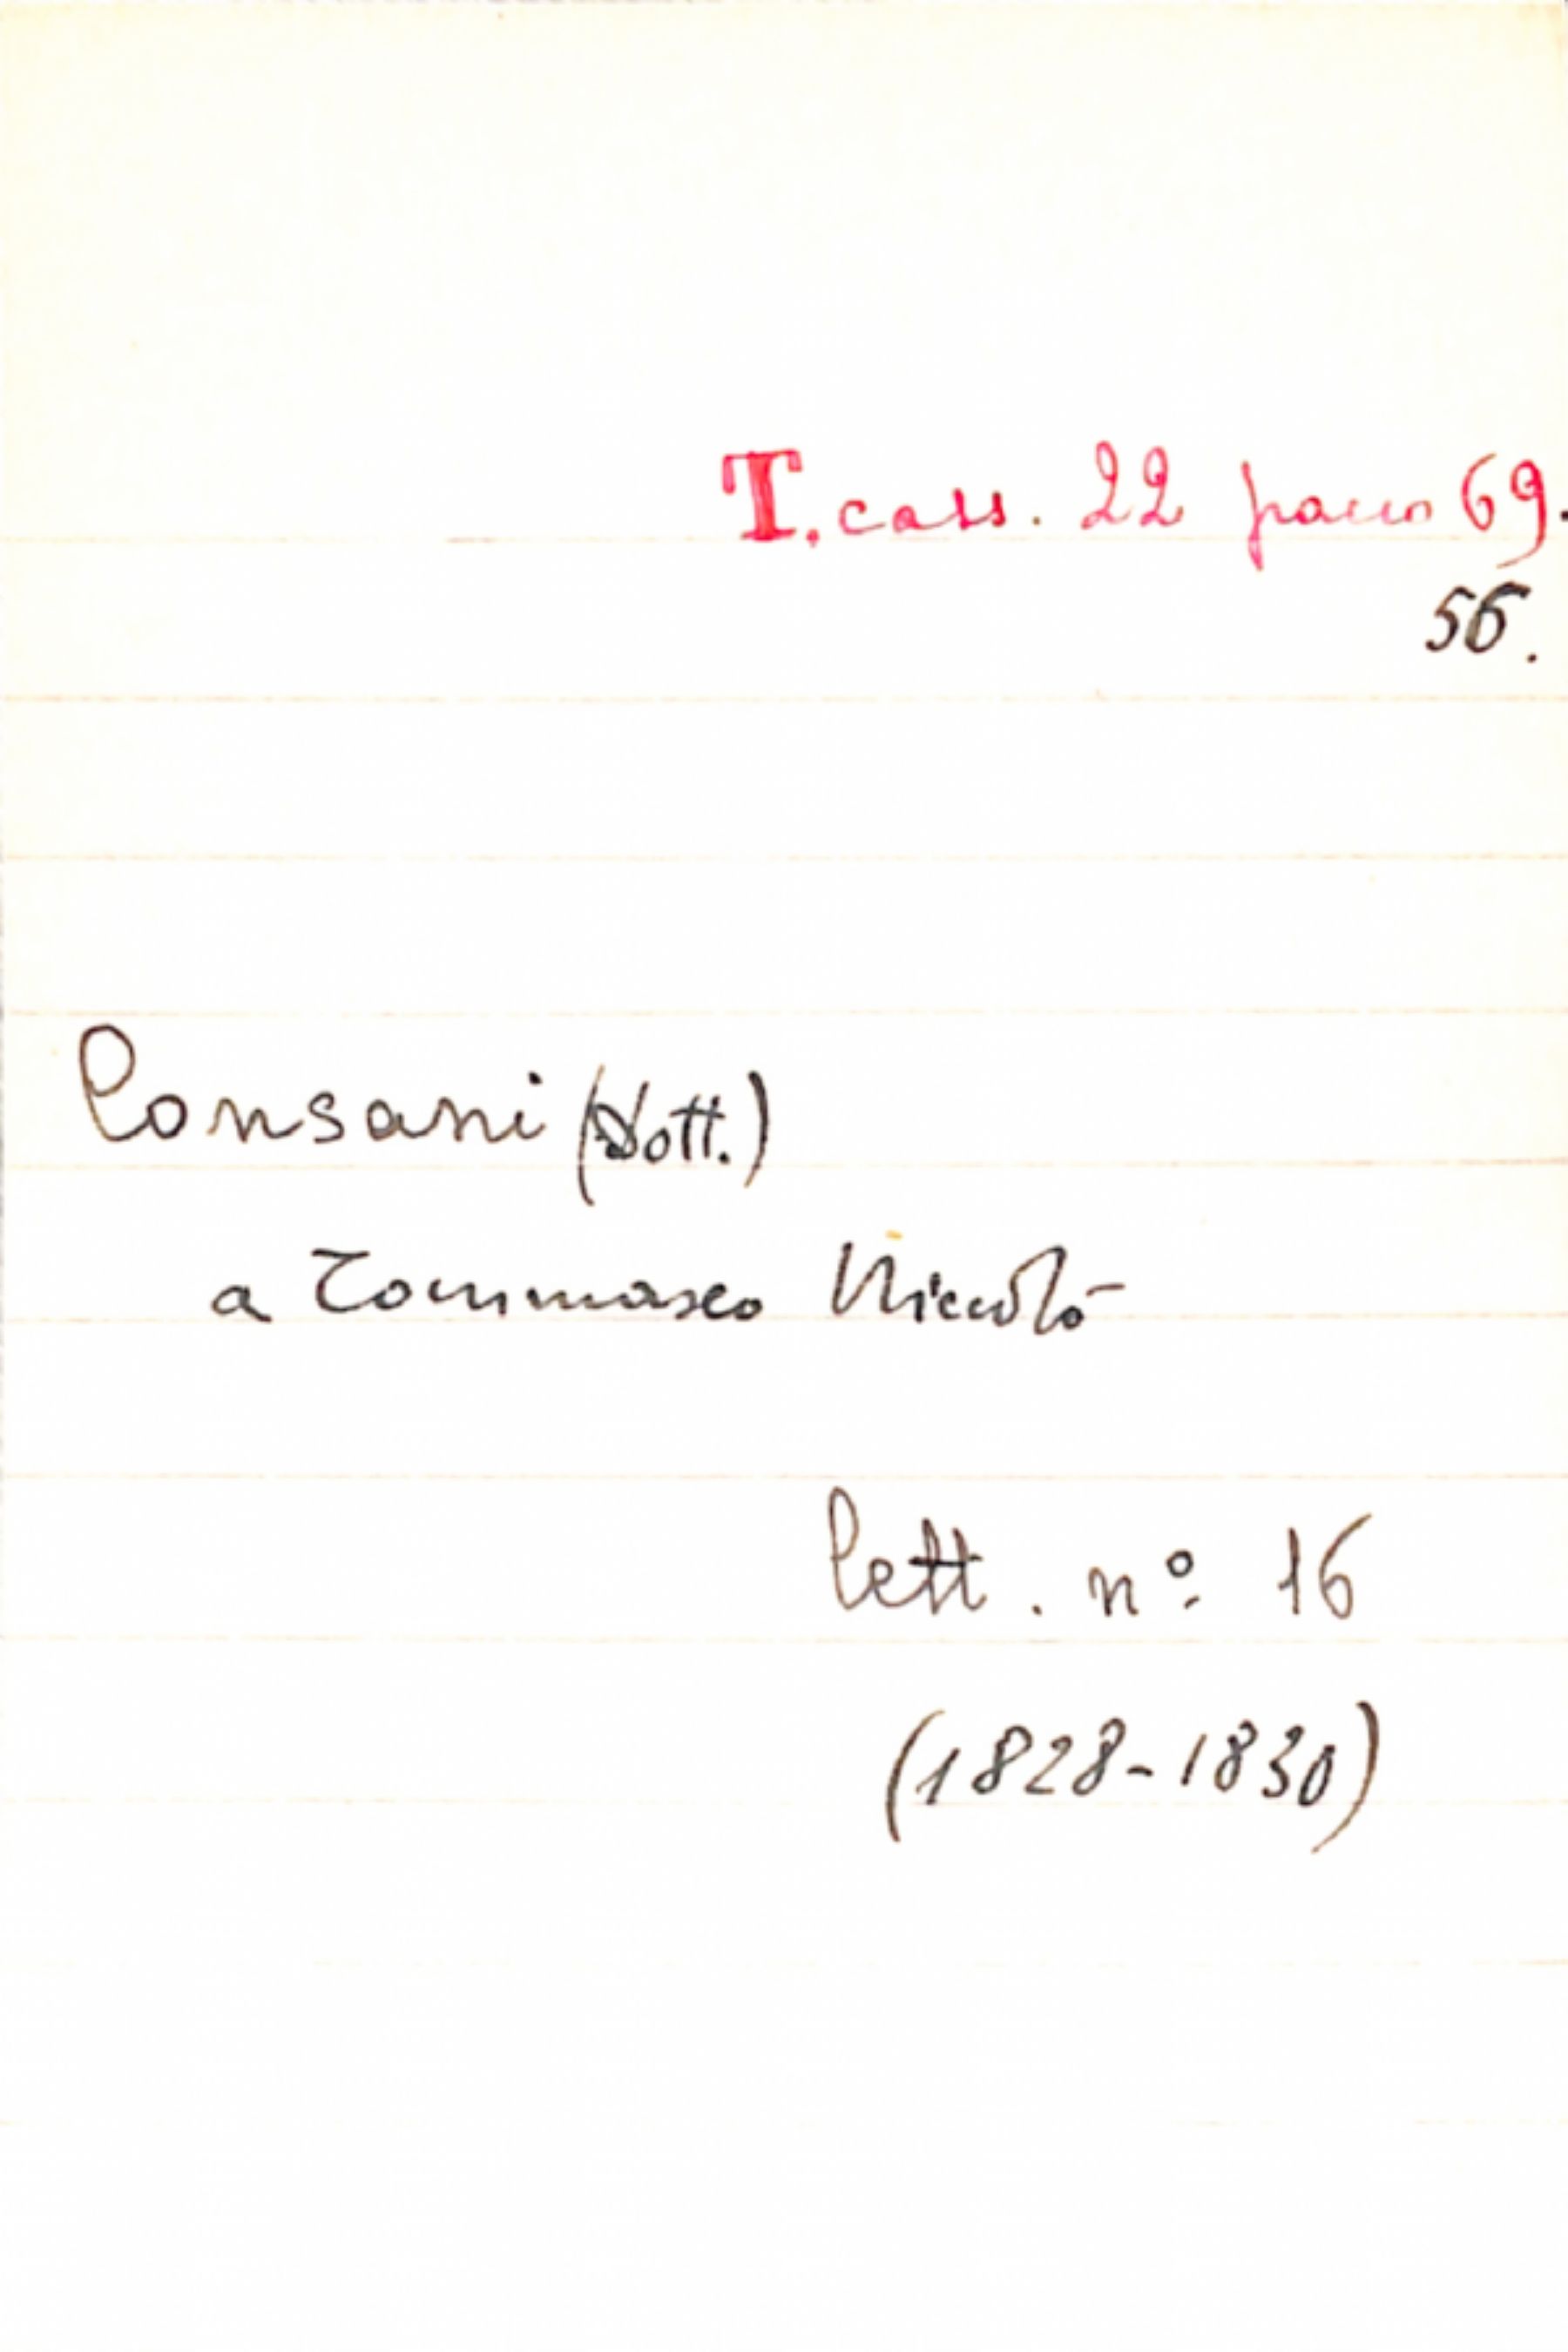 T. cass. 22 pacco 69.
56.
Consani (Dott.)
a Tommaseo Niccolò
lett. nº 16
(1828-1830)